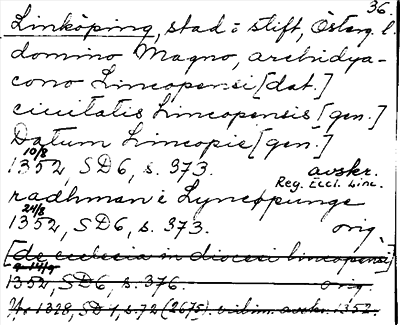 36.
Linköping, stad o stift, Österg. l.
domino Magno, archidya-
cono Lincopensi [dat.]
ciuitatis Lincopensis [gen.]
Datum Lincopie [gen.]
10/8
1352, SD6, s. 373. avskr.
Reg. Eccl. Linc.
radhman i Lyncøpunge
24/8
1352, SD6, s. 373. orig.
[de ecclesia in diocesi lincopensi]
1352, SD6, s. 376. orig.
1328, SD4, s. 72 (2675). vidim. avskr. 1352.